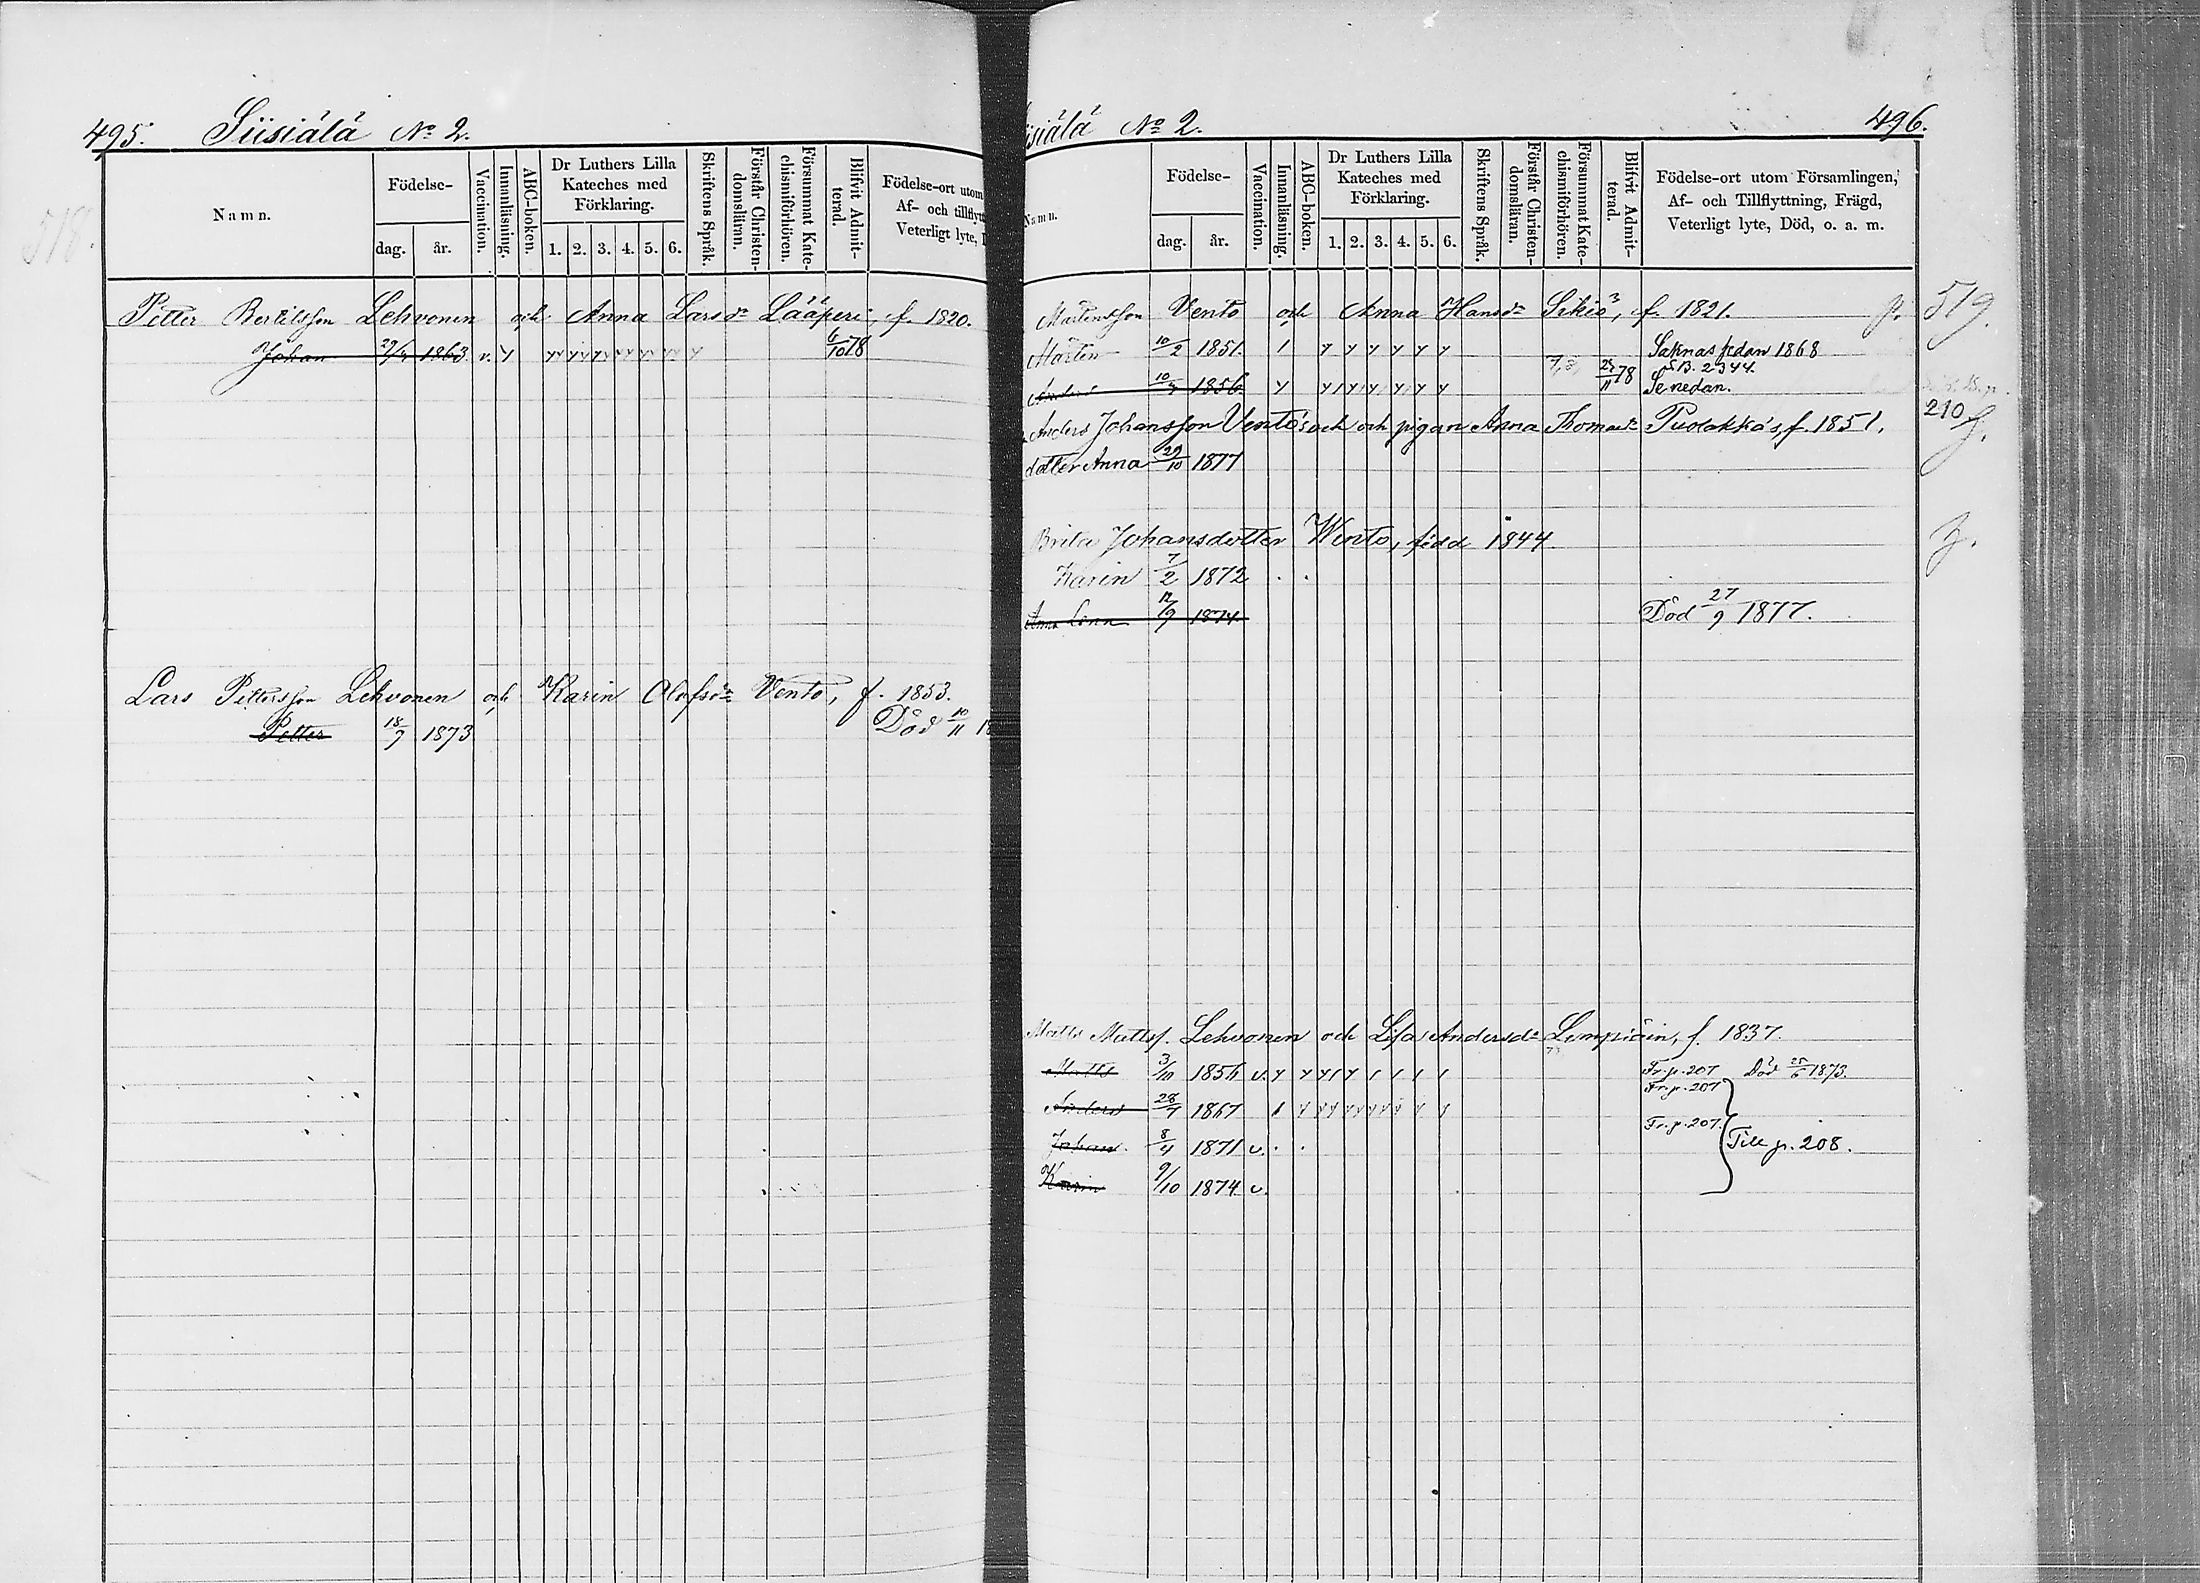 495. Siisiälä No 2.
518.
Namn.
Födelse-
dag. år.
Vaccination.
Innanläsning.
ABC-boken.
Dr Luthers Lilla
Kateches med
Förklaring.
1. 2. 3. 4. 5. 6.
Skriftens Språk.
Förstår Christen-
domsläran.
Försummat Kate-
chismiförhören.
Blifvit Admit-
terad.
Födelse-ort utom
Af- och tillflytt
Veterligt lyte,
Petter Bertilsson Lehvonen och Anna Larsdr Lääperi, f. 1820.
Johan 1863 v. 6/10 78
Lars Pettersson Lehvonen och Karin Olofsdr Vento, f. 1853.
Petter 18/9 1873 Död 10/11 18
isiälä No 2. 496.
Namn.
Födelse-
dag. år.
Vaccination.
Innanläsning.
ABC-boken.
Dr Luthers Lilla
Kateches med
Förklaring.
1. 2. 3. 4. 5. 6.
Skriftens Språk.
Förstår Christen-
domsläran.
Försummat Kate-
chismiförhören.
Blifvit Admit-
terad.
Födelse-ort utom Församlingen,
Af- och Tillflyttning, Frägd,
Veterligt lyte, Död, o. a. m.
Mårtensson Vento och Anna Hansdr Sikiö, f. 1821. p. 519.
Mårten 10/2 1851. Saknas sedan 1868
S.B. 2344.
Anders 1856 78 Se nedan.
Anders Johansson Vento's och pigan Anna Thomasdr Puolakka's, f. 1851. 210
dotter Anna 29/10 1877
Brita Johansdotter Wento, född 1844
Karin 7/2 1872
Anna Lena 12/9 1874 Död 27/9 1877.
Matts Mattss. Lehvonen och Lisa Andersdr Lempiäin, f. 1837.
Matts 3/10 1856 v. Fr. p. 207 Död 25/6 1873.
Anders 28/7 1867 Fr. p. 207
Johan 8/4 1871 v. Fr. p. 207. Till p. 208.
Karin 9/10 1874 v.